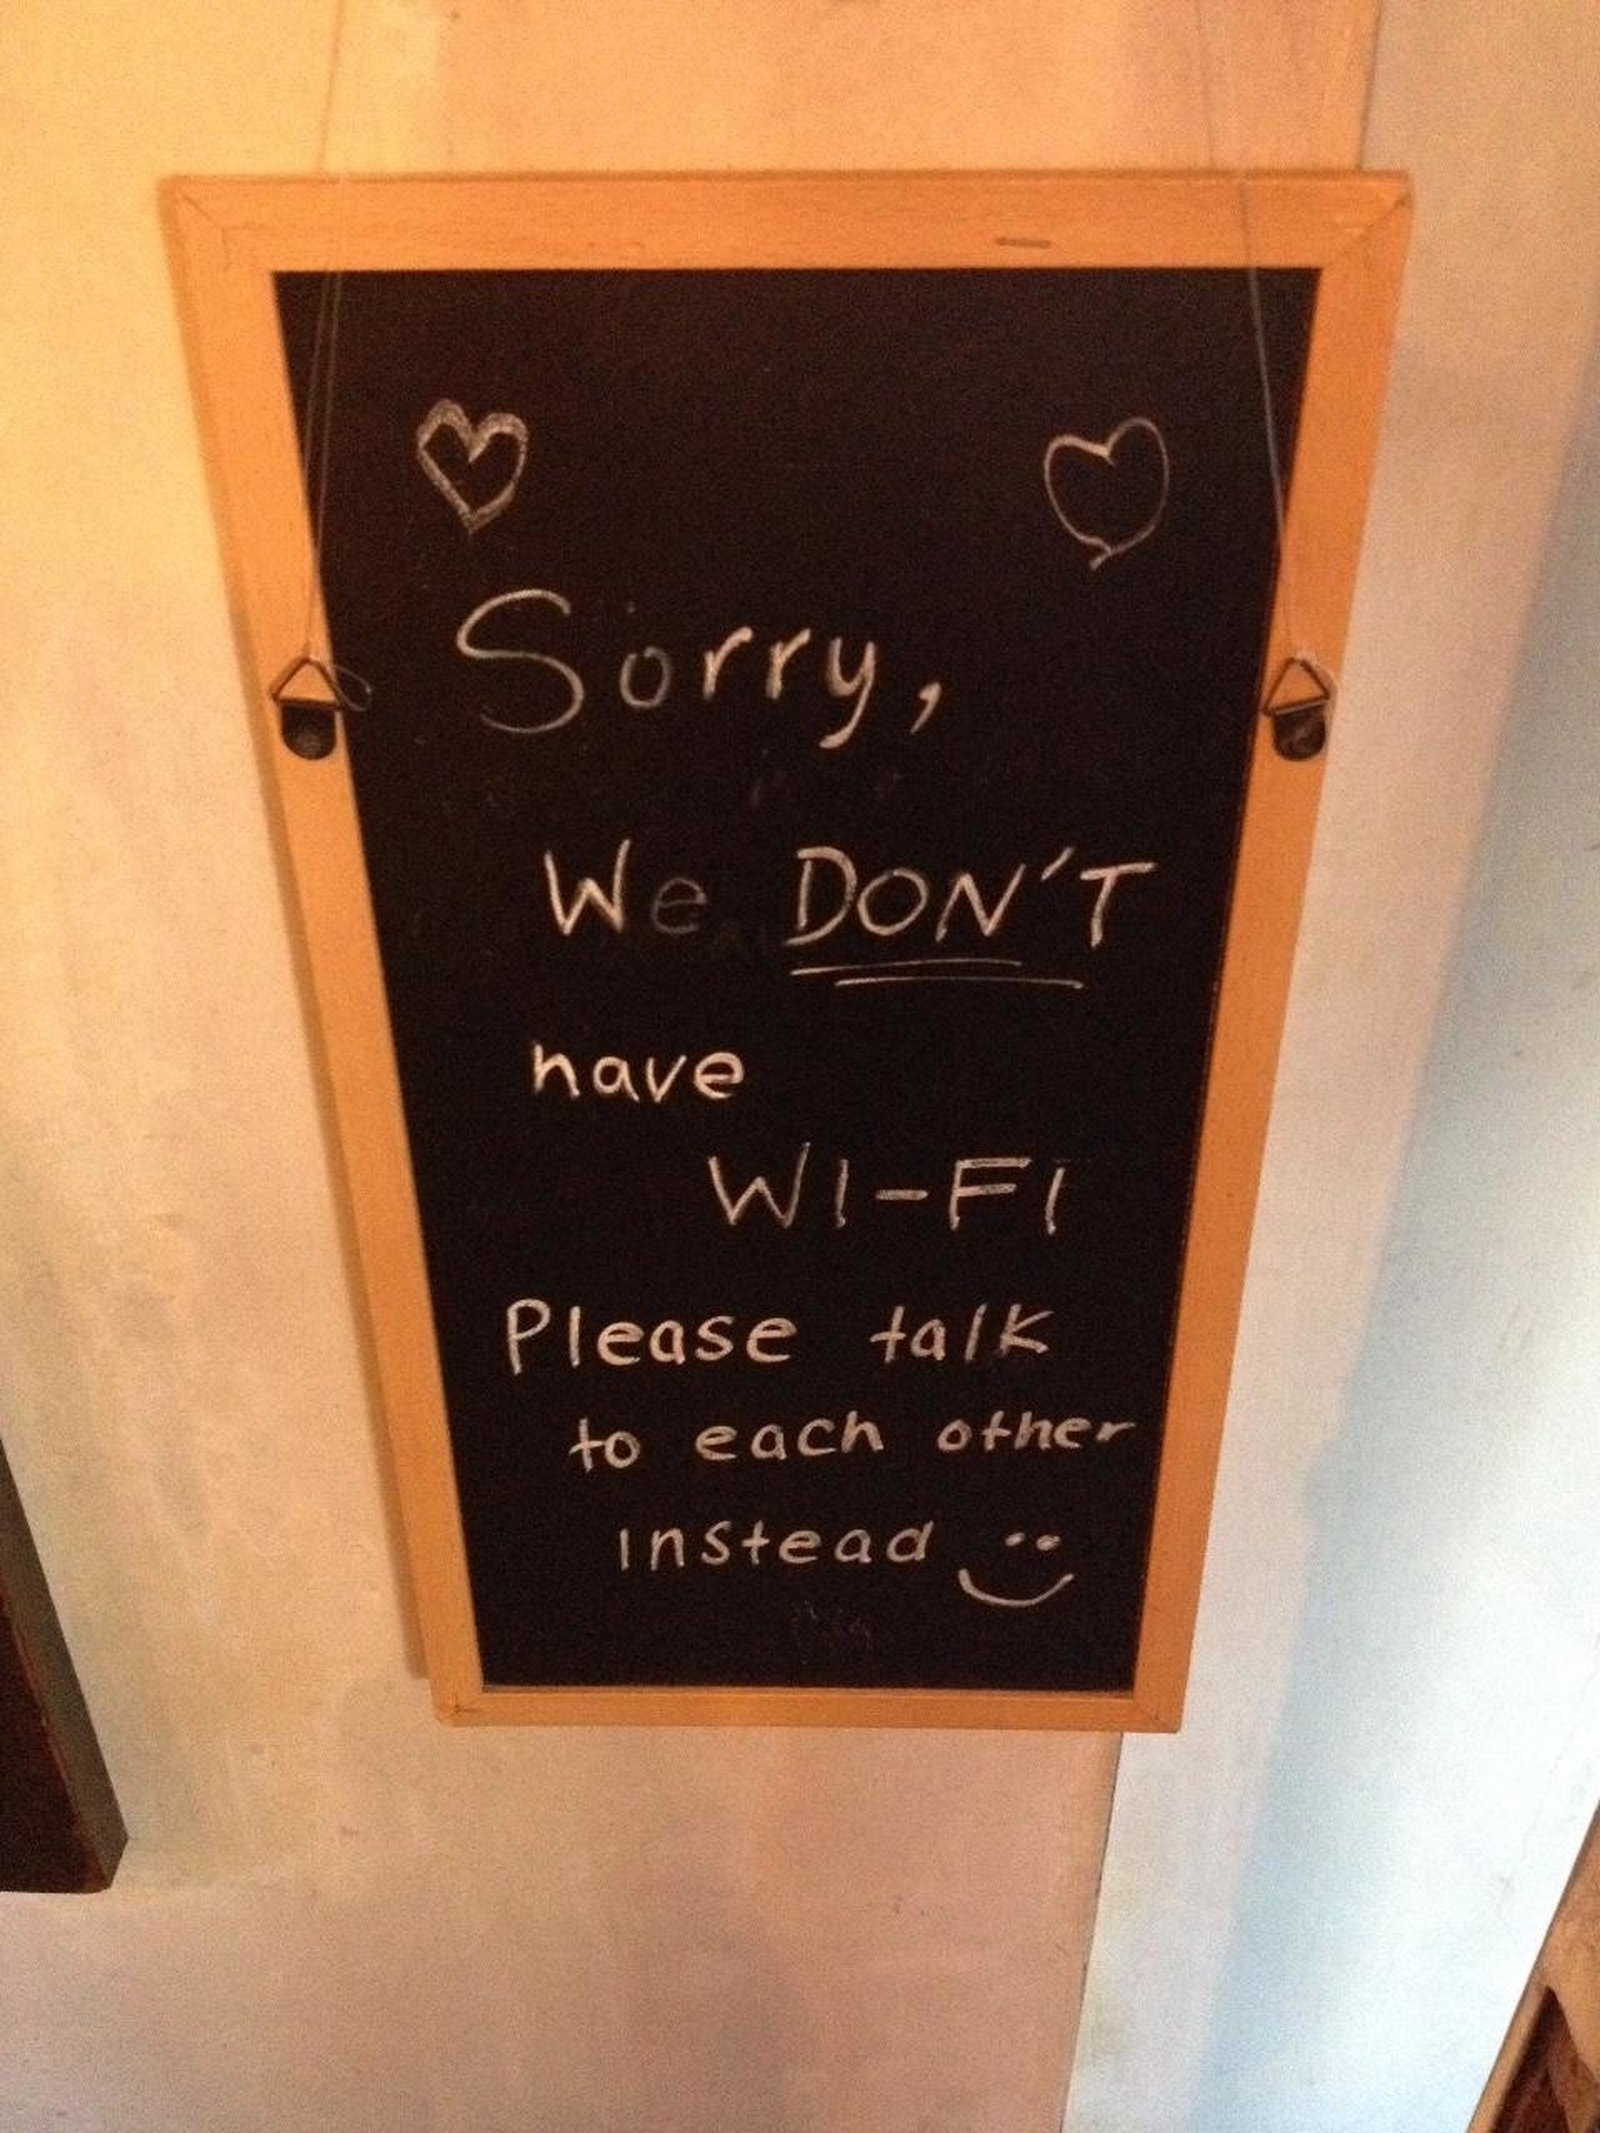 Sorry,
We DON'T
have
WI-FI
Please talk
to each other
instead